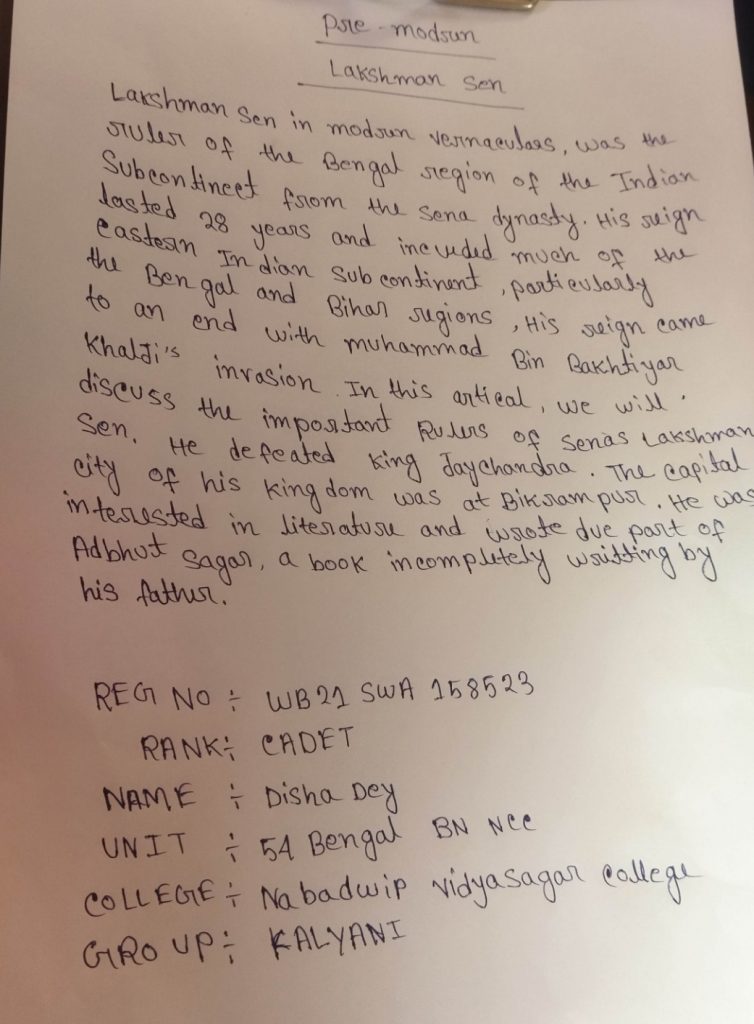 Pre-modern
Lakshman Sen
Lakshman Sen in modern vernaculars, was the
ruler of the Bengal region of the Indian
Subcontineet from the Sena dynasty. His reign
lasted 28 years and included much of the
eastern Indian Subcontinent, particularly
the Bengal and Bihar regions, His reign came
to an end with muhammad Bin Bakhtiyar
Khalji's invasion. In this artical, we will
discuss the important Rulers of Senas Lakshman
Sen. He defeated King Jaychandra. The capital
city of his kingdom was at Bikrampur. He was
interested in literature and wrote due part of
Adbhut Sagar, a book incompletely writting by
his father.
REG NO ÷ WB21 SWA 158523
RANK ÷ CADET
NAME ÷ Disha Dey
UNIT ÷ 54 Bengal BN NCC
COLLEGE ÷ Nabadwip Vidyasagar College
GROUP ÷ KALYANI